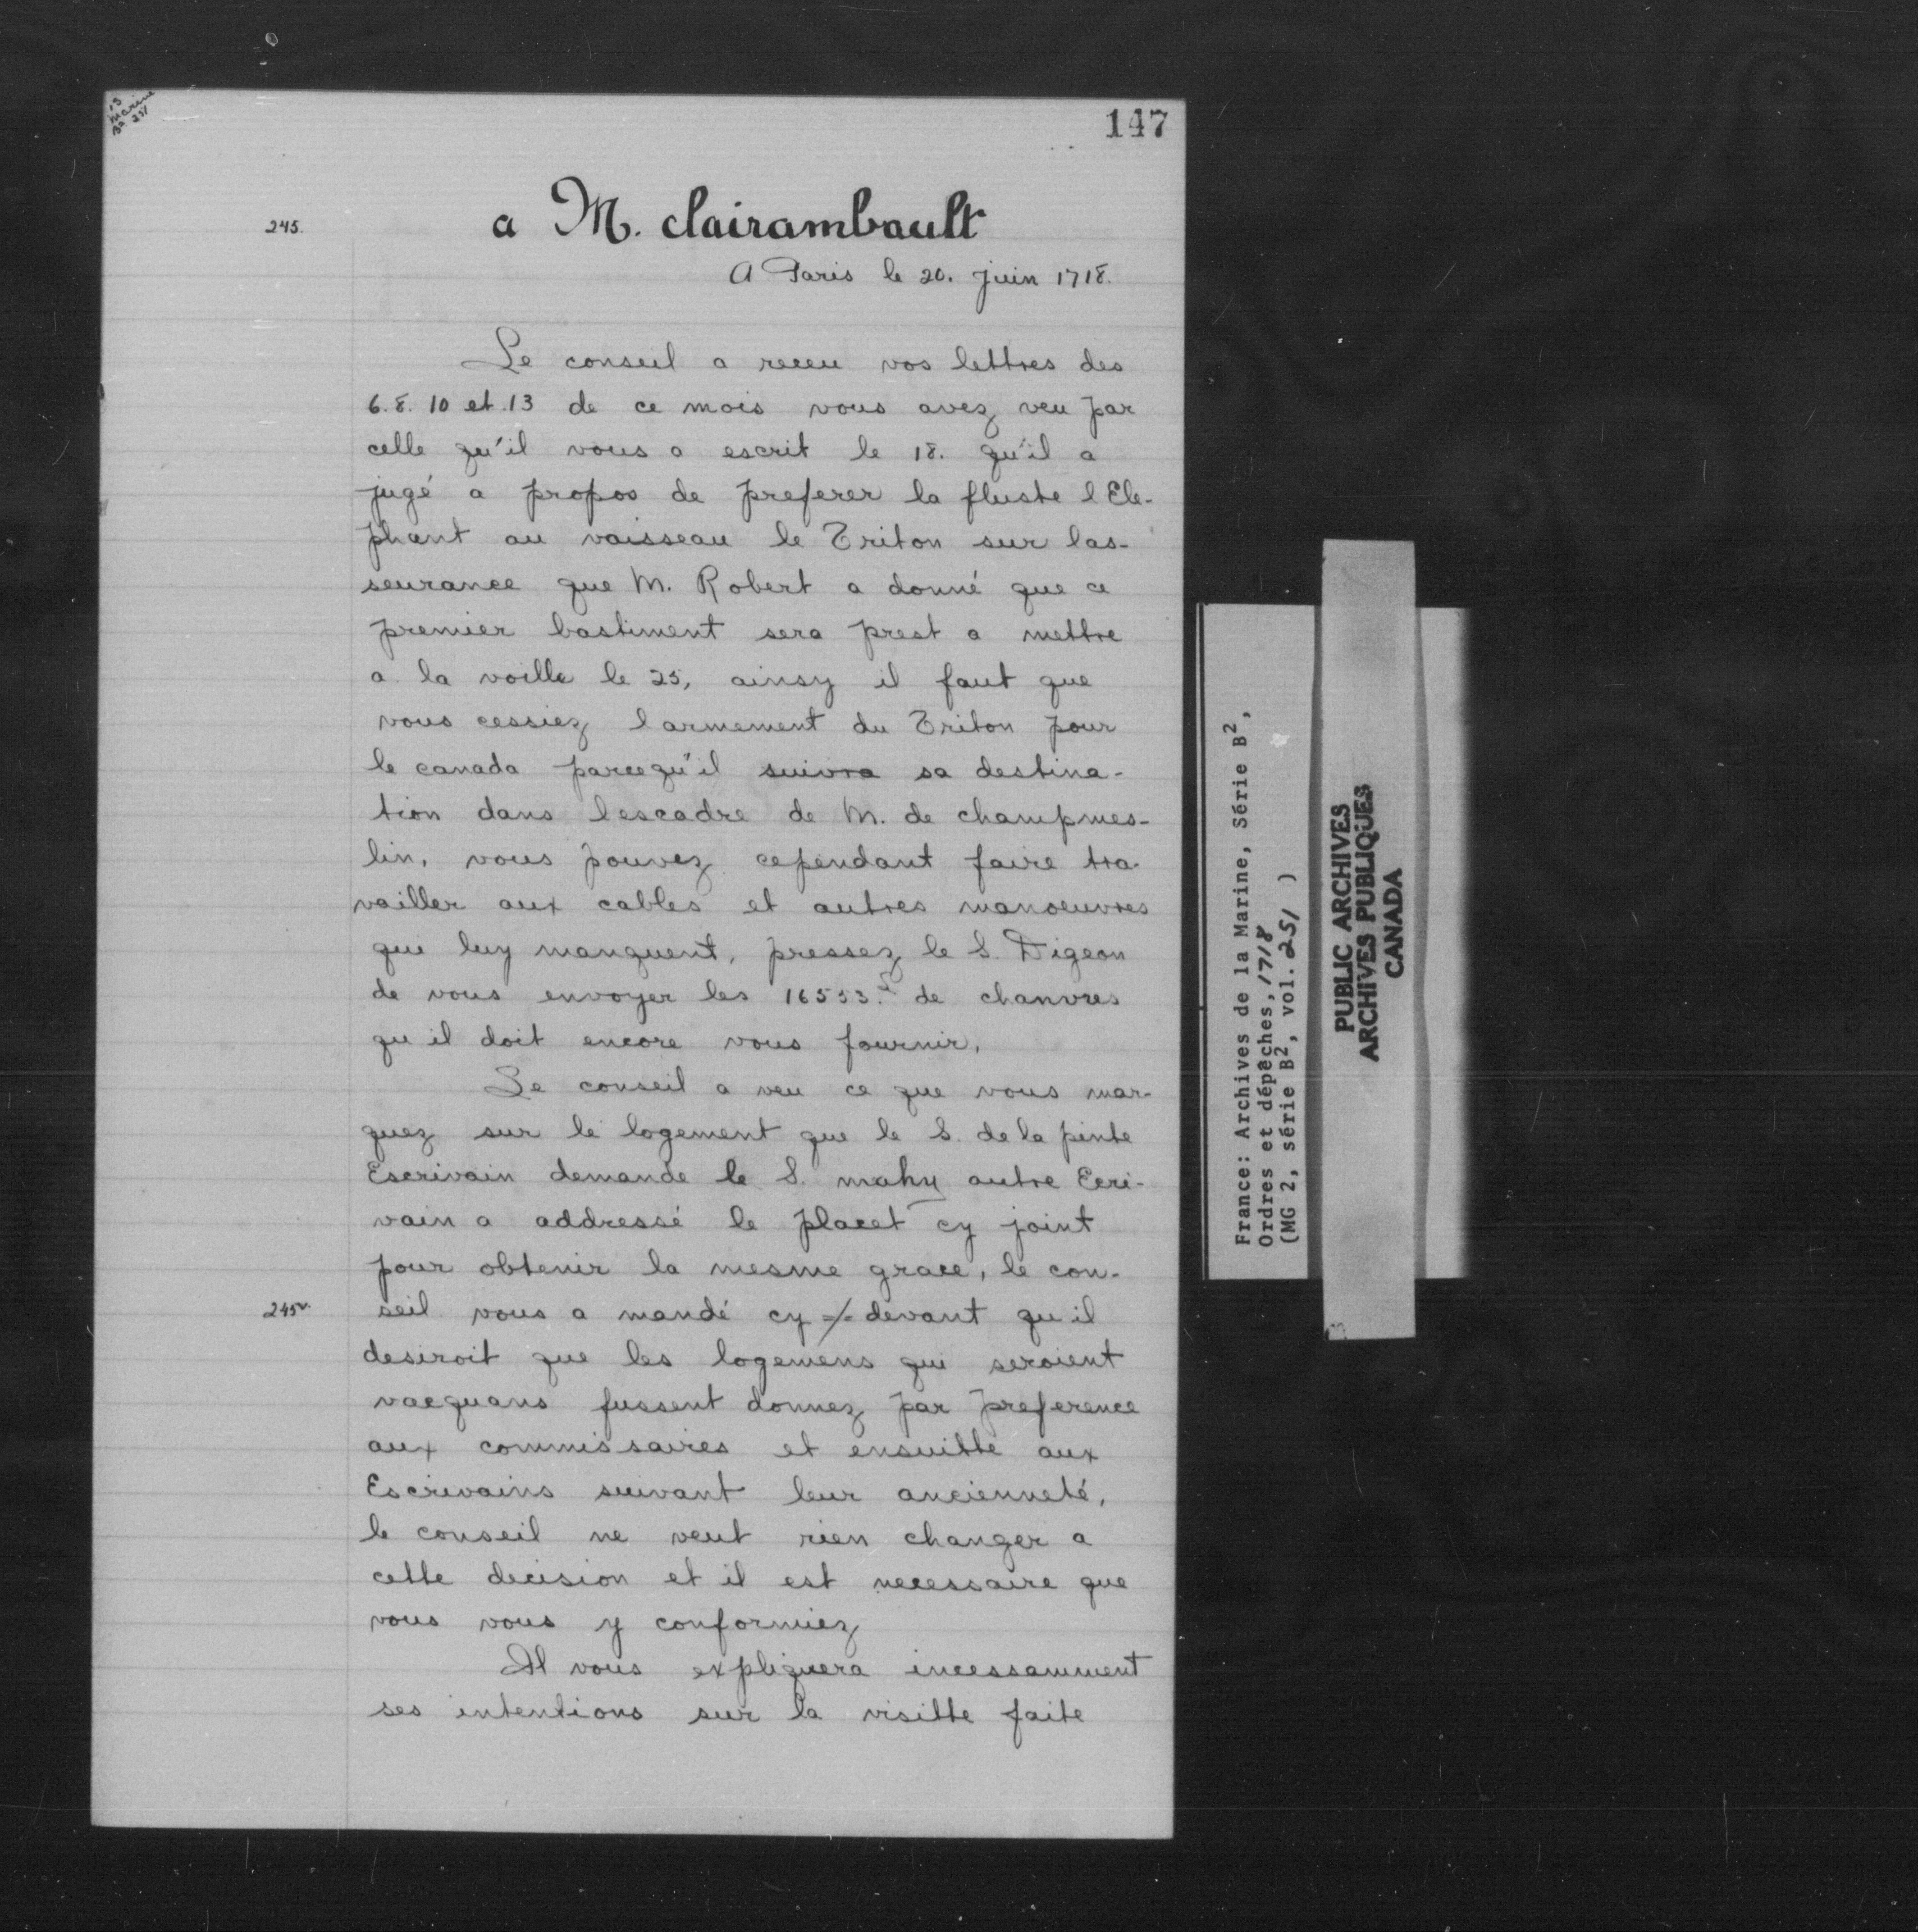 13
Marine
B2 251
147
245.
a M. clairambault
A Paris le 20. juin 1718.
Le conseil a receu vos lettres des
6. 8. 10 et 13 de ce mois vous avez veu par
celle qu'il vous a escrit le 18. qu'il a
jugé a propos de preferer la fluste l Ele-
phant au vaisseau le Triton sur las-
seurance que M. Robert a donné que ce
premier bastiment sera prest a mettre
a la voille le 25, ainsy il faut que
vous cessiez l armement du Triton pour
le canada parcequ'il suivra sa destina-
tion dans lescadre de M. de champmes-
lin, vous pouvez cependant faire tra-
vailler aux cables et autres manoeuvres
qui luy manquent, pressez le S. Digeon
de vous envoyer les 16553.L de chanvres
qu il doit encore vous fournir.
Le conseil a veu ce que vous mar-
quez sur le logement que le S. de la pinte
Escrivain demande le S. mahy autre Ecri-
vain a addressé le placet cy joint
pour obtenir la mesme grace, le con-
245v.
seil vous a mandé cy =/= devant qu il
desiroit que les logemens qui seroient
vacquans fussent donnez par preference
aux commissaires et ensuitte aux
Escrivains suivant leur ancienneté,
le conseil ne veut rien changer a
cette decision et il est necessaire que
vous vous y conformiez
Il vous expliquera incessamment
ses intentions sur la visitte faite
France: Archives de la Marine, Série B2,
Ordres et dépêches, 1718
(MG 2, série B2, vol. 251 )
PUBLIC ARCHIVES
ARCHIVES PUBLIQUES
CANADA